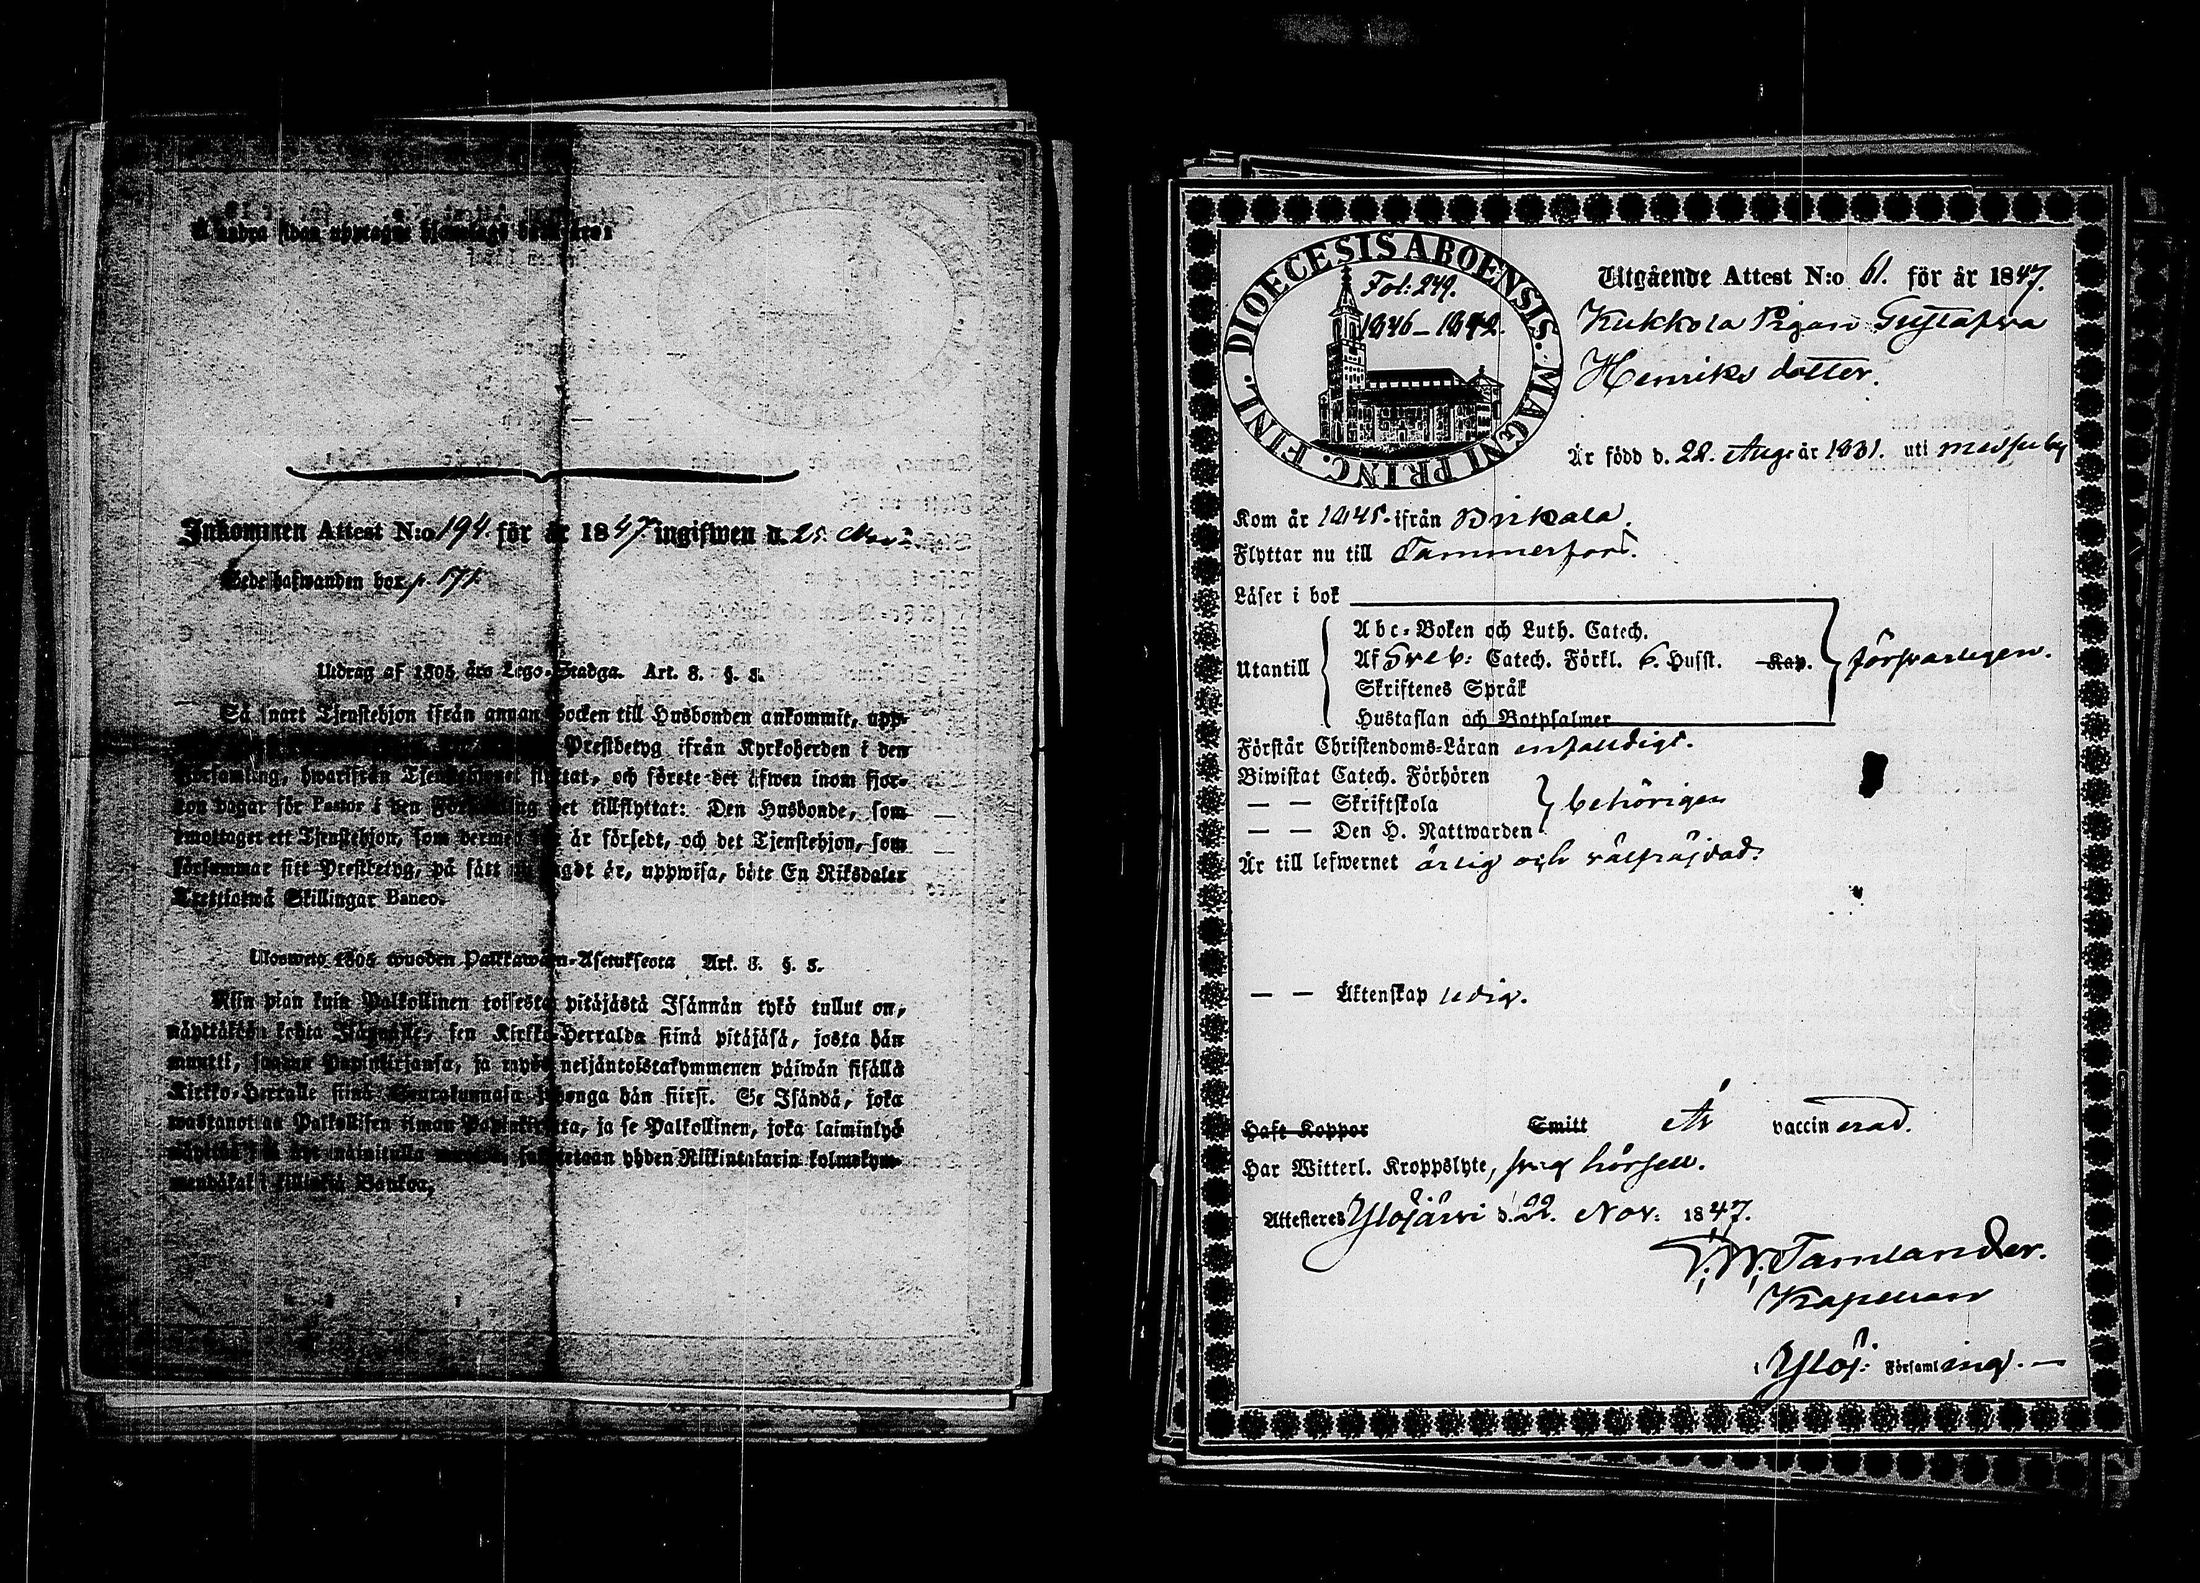 Inkommen Attest N:o 194. för år 1847. ingifwen d. 25. Nov.
Dess hafwanden box p. 171.
Utdrag af 1805 års Lego-Stadga. Art. 3. §. 3.
Så snart Tjenstehjon ifrån annan Socken till Husbonden ankommit, upp-
Prestbetyg ifrån Kyrkoherden i den
Församling, hwarifrån Tjenstehjonet flyttat, och förete det äfwen inom fjor-
ton dagar för Pastor i den Församling det tillflyttat: Den Husbonde, som
emottager ett Tjenstehjon, som dermed ej är försedt, och det Tjenstehjon, som
försummar sitt Prestbetyg, på sätt sagdt är, uppwisa, böte En Riksdaler
Trettiotwå Skillingar Banco.
Ulosweto 1805 wuoden Palkkawäen-Asetuksesta Art. 3. §. 3.
Niin pian kuin Palkollinen toisesta pitäjästä Isännän tykö tullut on,
näyttäkön kohta sen Kirkko-Herralda siinä pitäjäsä, josta hän
muutti, Papinkirjansa, ja myös neljäntoistakymmenen päiwän sisällä
Kirkko-Herralle siinä Seurakunnasa, jhonga hän siirsi. Se Isändä, joka
wastanottaa Palkollisen ilman Papinkirjata, ja se Palkollinen, joka laiminlyö
nyt mainitulla yhden Riikintalarin kolmekym-
mendäkaksi killingiä Bankoa.
DIOECESIS ABOENSIS. MAGNI PRINC. FINL.
Fol: 249.
1846–1842.
Utgående Attest N:o 61. för år 1847.
Kukkola Pigan Gustafva
Henriks dotter.
Är född d. 28. Aug. år 1831. uti Messuby
Kom år 1845. ifrån Birkala.
Flyttar nu till Tammerfors.
Läser i bok
Utantill
Abc-Boken och Luth. Catech.
Af Sveb: Catech. Förkl. 6. Hufst. Kap.
Skriftenes Språk
Hustaflan och Botpsalmer
försvarligen.
Förstår Christendoms-Läran enfaldigt.
Biwistat Catech. Förhören
— — Skriftskola
— — Den H. Nattwarden
behörigen
Är till lefwernet ärlig och välfräjdad.
— — Äktenskap ledig.
Haft Koppor Smitt Är vaccinerad.
Har Witterl. Kroppslyte, svag hörsell.
Attesteres Ylöjärvi d. 22. Nov: 1847.
Tamlander.
Kapellan
i Ylöj: Församling. —